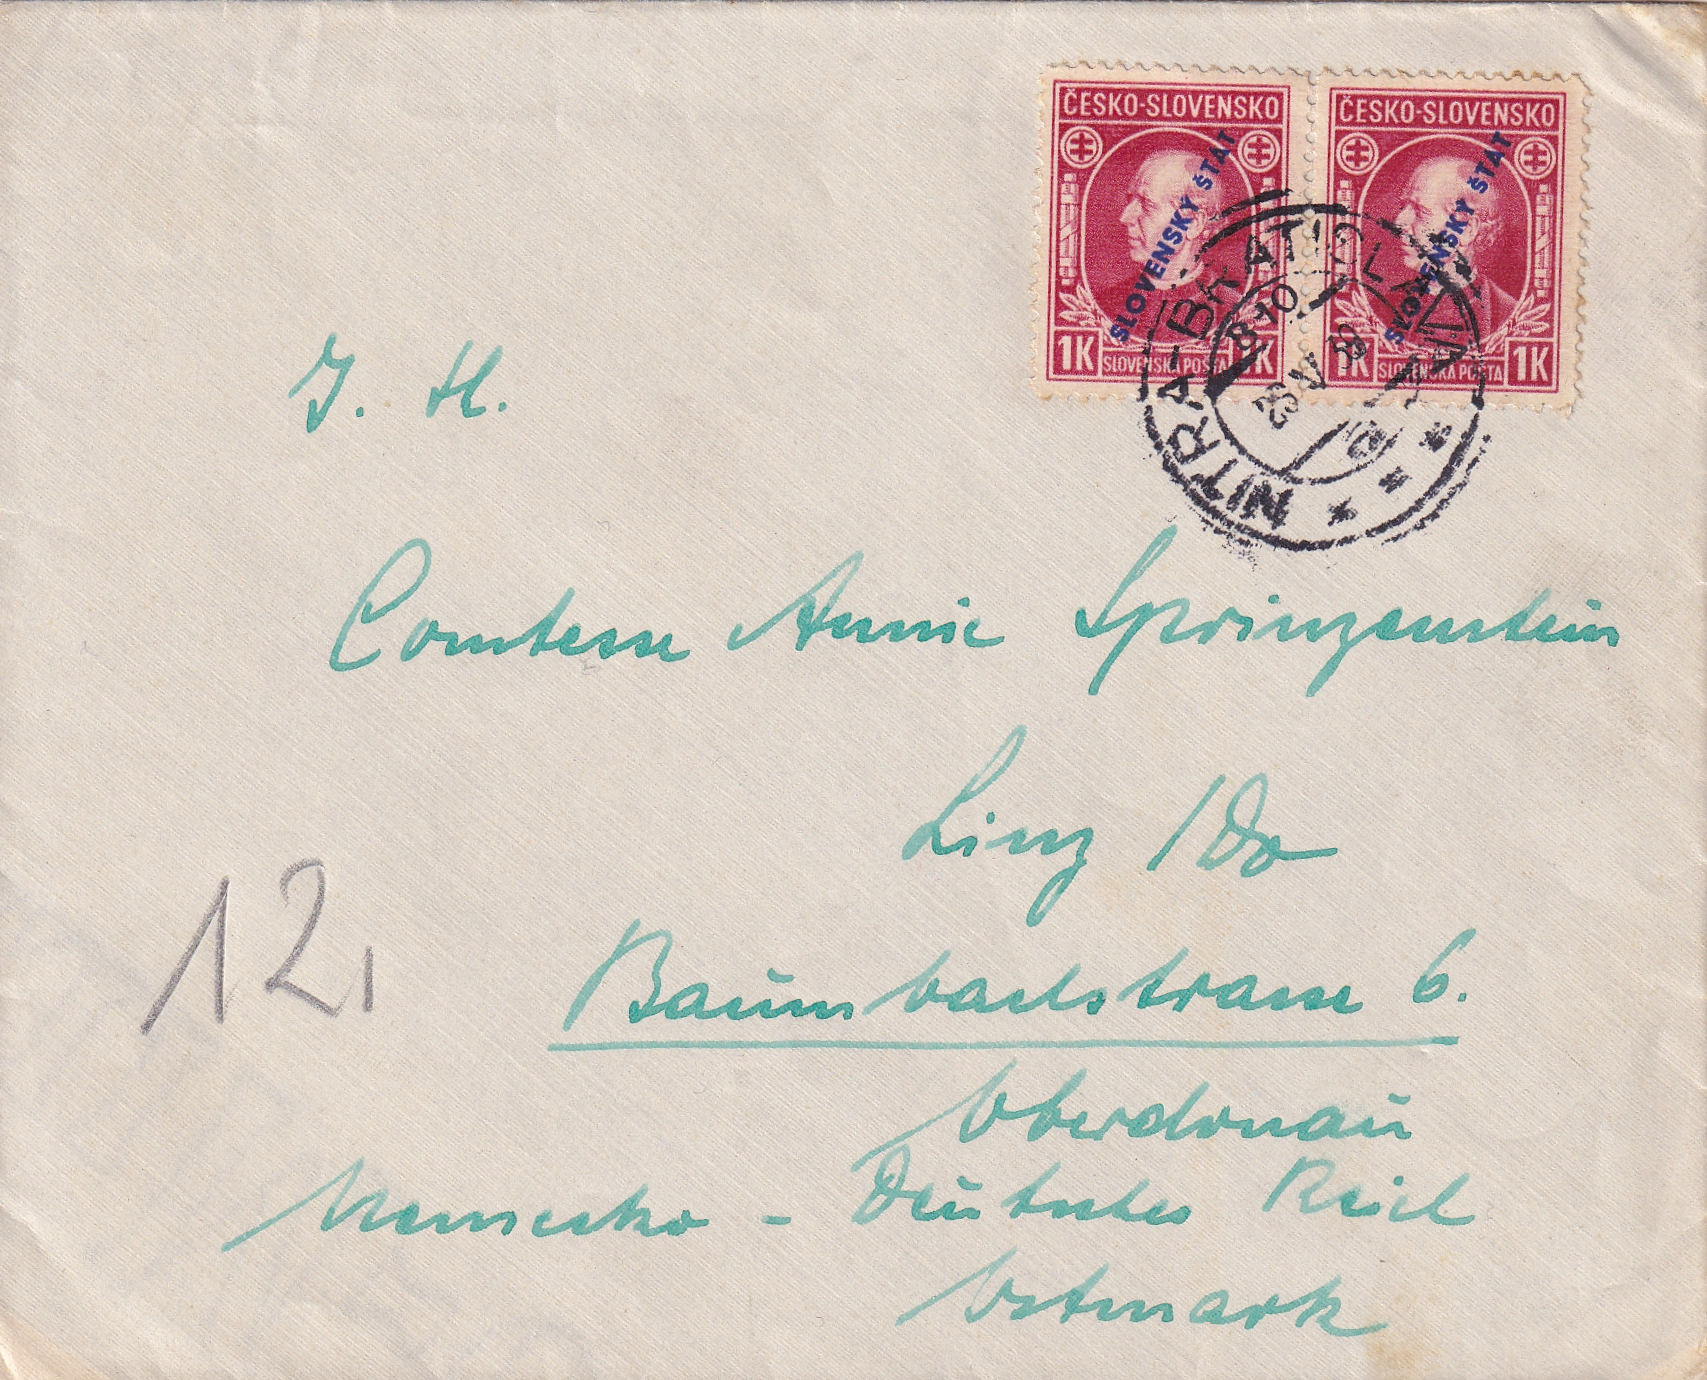 ČESKO-SLOVENSKO ČESKO-SLOVENSKO
SLOVENSKÝ ŠTÁT SLOVENSKÝ ŠTÁT
1K SLOVENSKÁ POŠTA 1K 1K SLOVENSKÁ POŠTA 1K
NITRA-BRATISLAVA
J. H.
Comtesse Annie Sprinzenstein
Linz /Do
Baumbachstrasse 6.
Oberdonau
Nemecko - Deutsches Reich
Ostmark
12